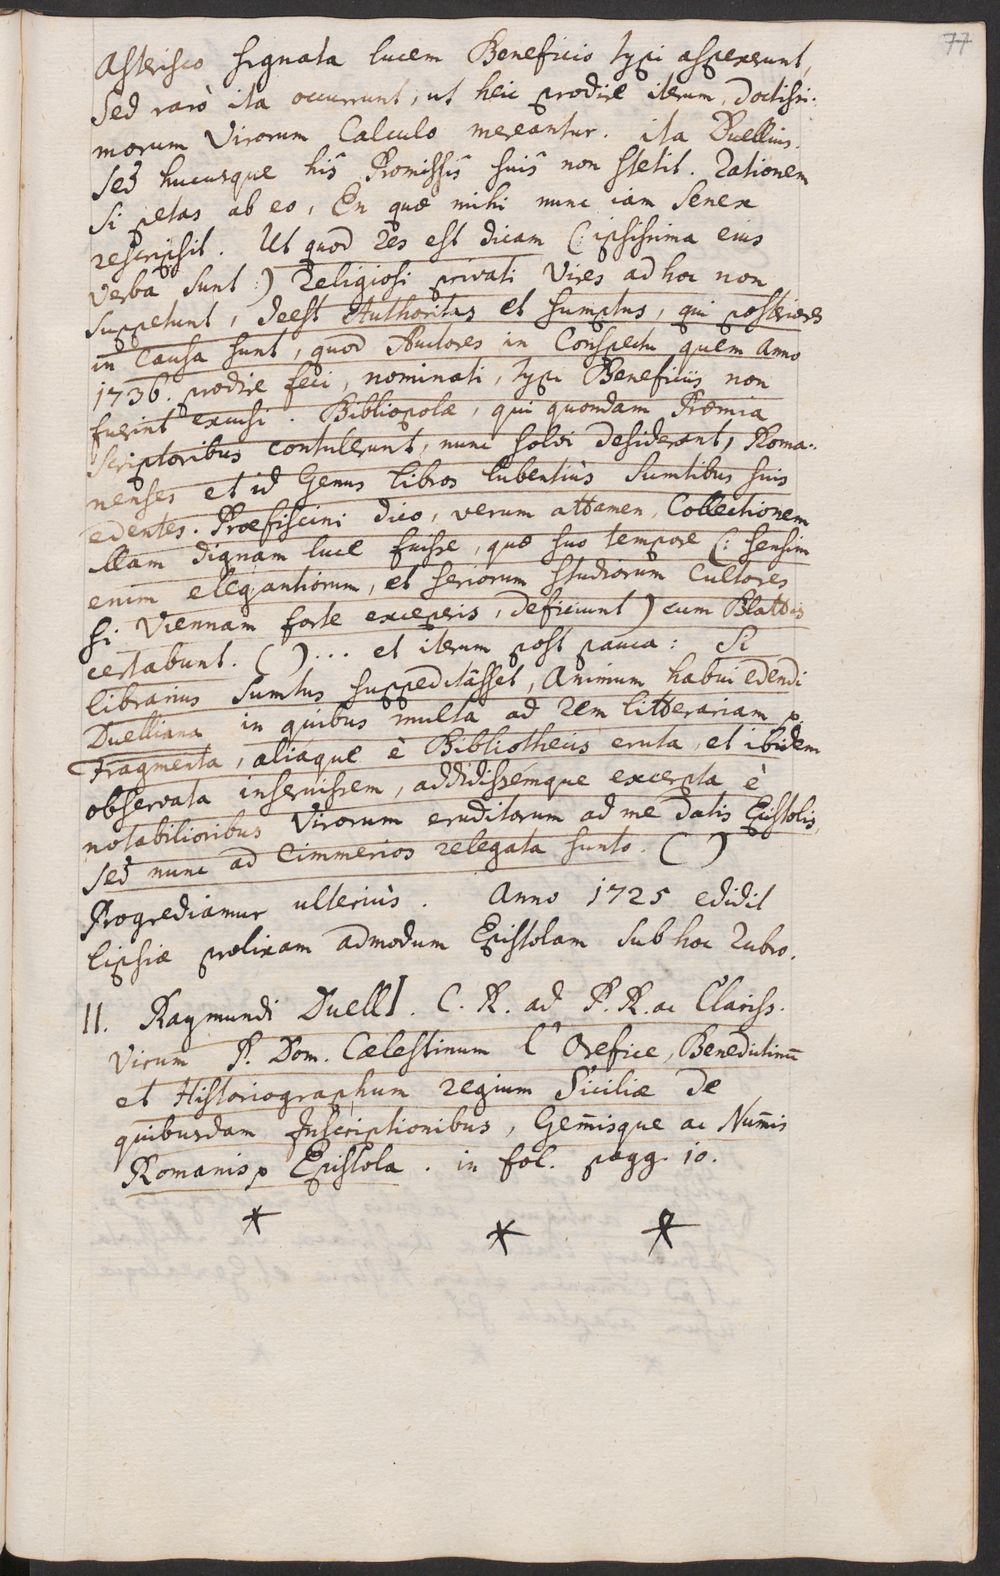 77
Asterisco signata lucem Beneficio typi aspexerunt,
Sed rarò ita occurrunt, ut heic prodire iterum, doctissi:
morum Virorum Calculo mereantur. ita Duellius.
Sed hucusque his Promissis suis non stetit. Rationem
si petas ab eo, En quæ mihi nunc iam Senex
rescripsit. Ut quod res est dicam (: ipsissima eius
verba sunt :) Religiosi privati vires ad hoc non
suppetunt, deest Authoritas et sumptus, qui posteriores
in Causa sunt, quod Auctores in Conspectu quem Anno
1736. prodire feci, nominati, typi Beneficiis non
fuerint excusi. Bibliopolæ, qui quondam Præmia
Scriptoribus contulerunt, nunc solvi desiderant, Roma:
nenses et id Genus libros lubentiùs Sumtibus suis
edentes. Præfiscini dico, verum attamen, Collectionem
illam dignam luce fuisse, quæ suo tempore (: sensim
enim elegantiorum, et seriorum studiorum Cultores
si Viennam forte exceperis, deficiunt) cum Blattis
certabunt. ( ) ... et iterum post pauca: Si
librarius Sumtus suppeditâsset, Animum habui edendi
Duelliana in quibus multa ad Rem litterariam p.
Fragmenta, aliaque è Bibliothecis eruta, et ibidem
observata inseruissem, addidissemque excerpta è
notabilioribus Virorum eruditorum ad me datis Epistolis,
Sed nunc ad Cimmerios relegata sunto. ( )
Progrediamur ulteriùs. Anno 1725 edidit
Lipsiæ prolixam admodum Epistolam sub hoc Rubro.
II. Raymundi DuellI. C. R. ad P. R. ac Clariss.
Virum P. Dom. Cælestinum l'Orefice, Benedictinū
et Historiographum regium Siciliæ de
quibusdam Inscriptionibus, Gem̄isque ac Num̄is
Romanis p Epistola. in fol. pagg. 10.
* * *